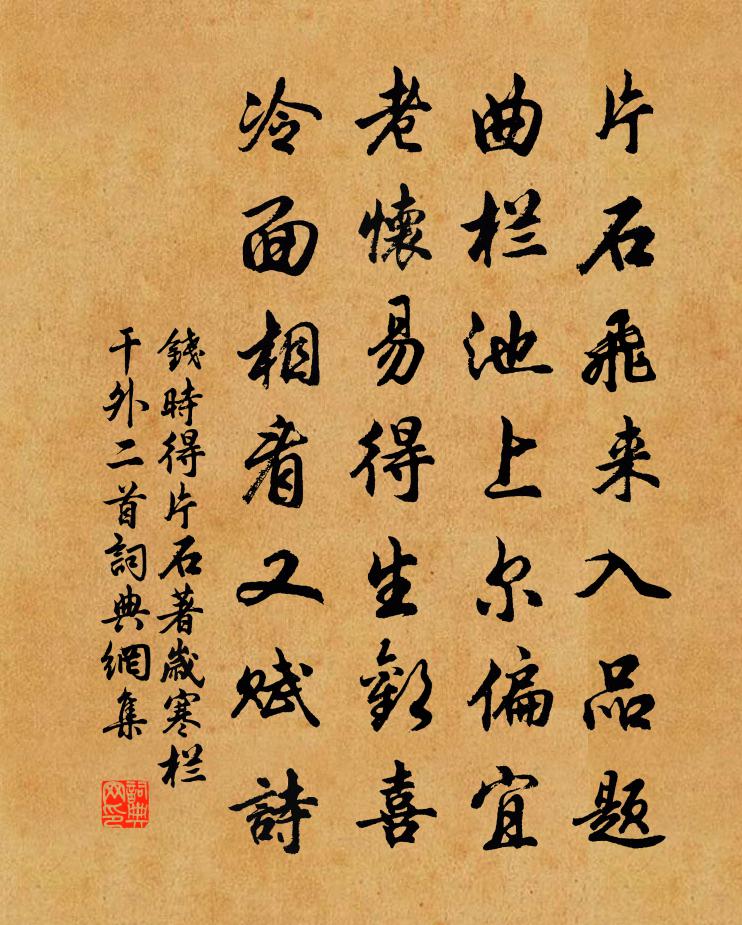 片石飛来入品题
曲栏池上尔偏宜
老懷易得生歡喜
冷面相看又赋詩
錢時得片石著歲寒栏
干外二首詞典網集
詞典网印